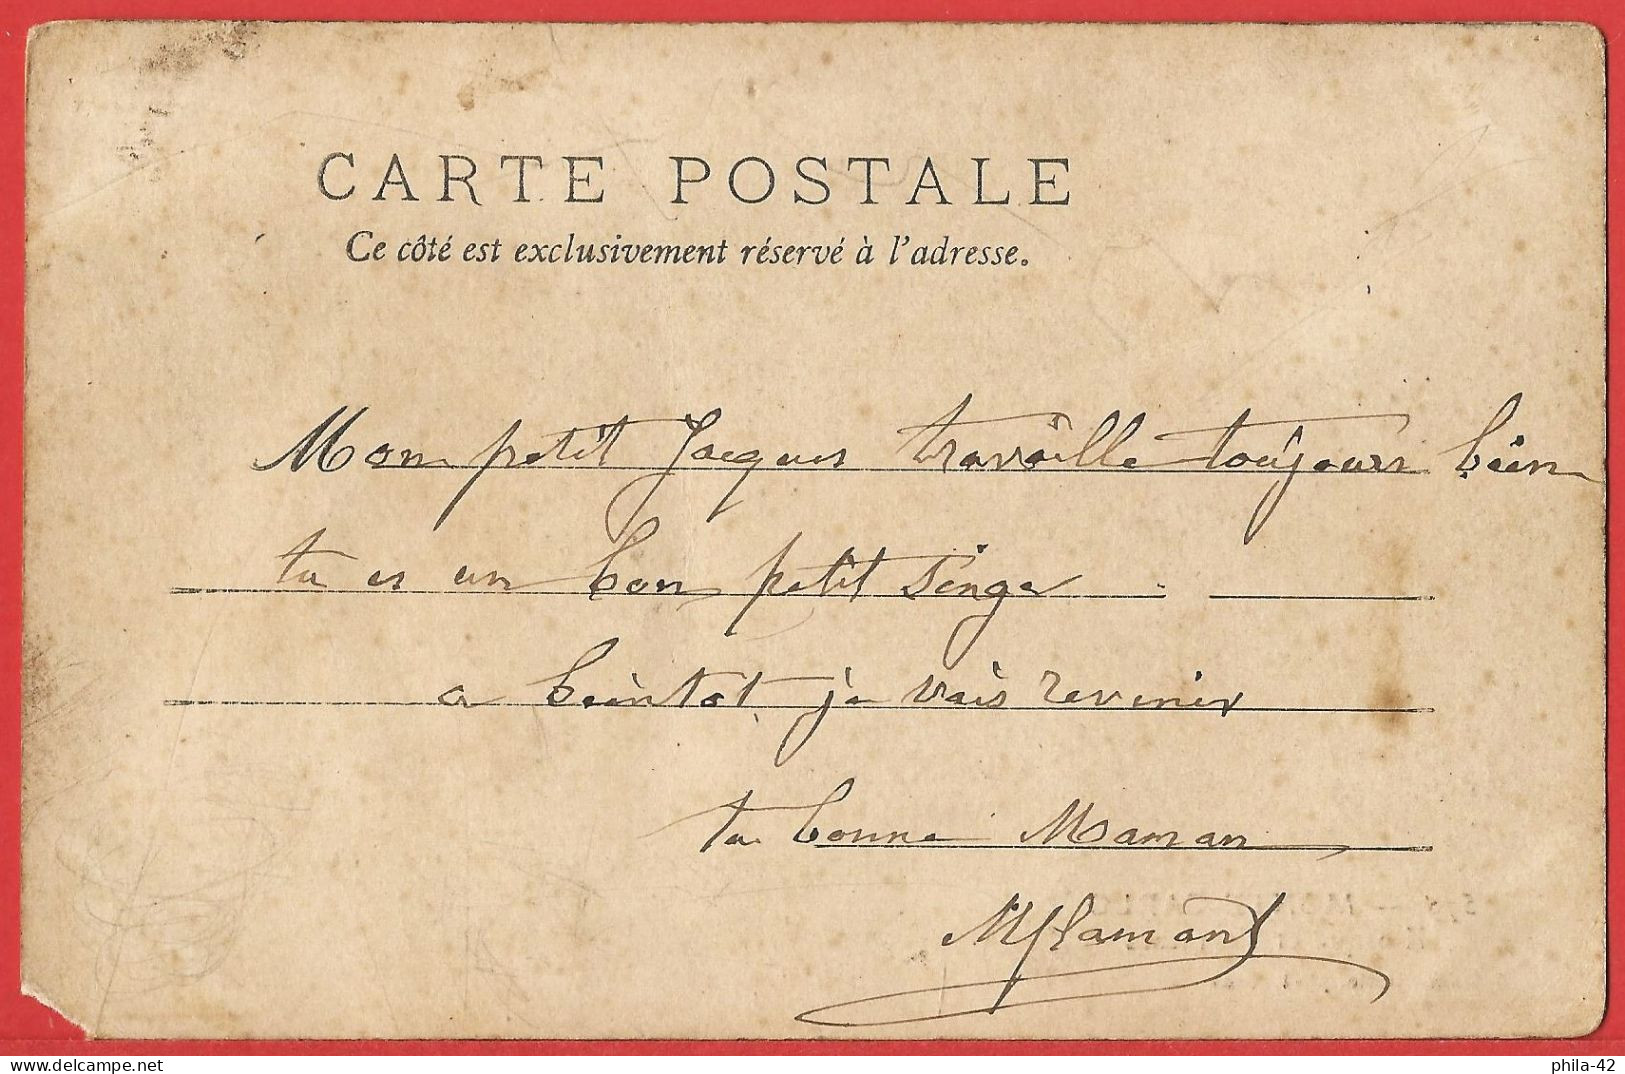 CARTE POSTALE
Ce côté est exclusivement réservé à l'adresse.
Mon petit Jacques travaille toujours bien
tu es un bon petit singe
a bientot je vais revenir
ta bonne Maman
delcampe.net
phila-42